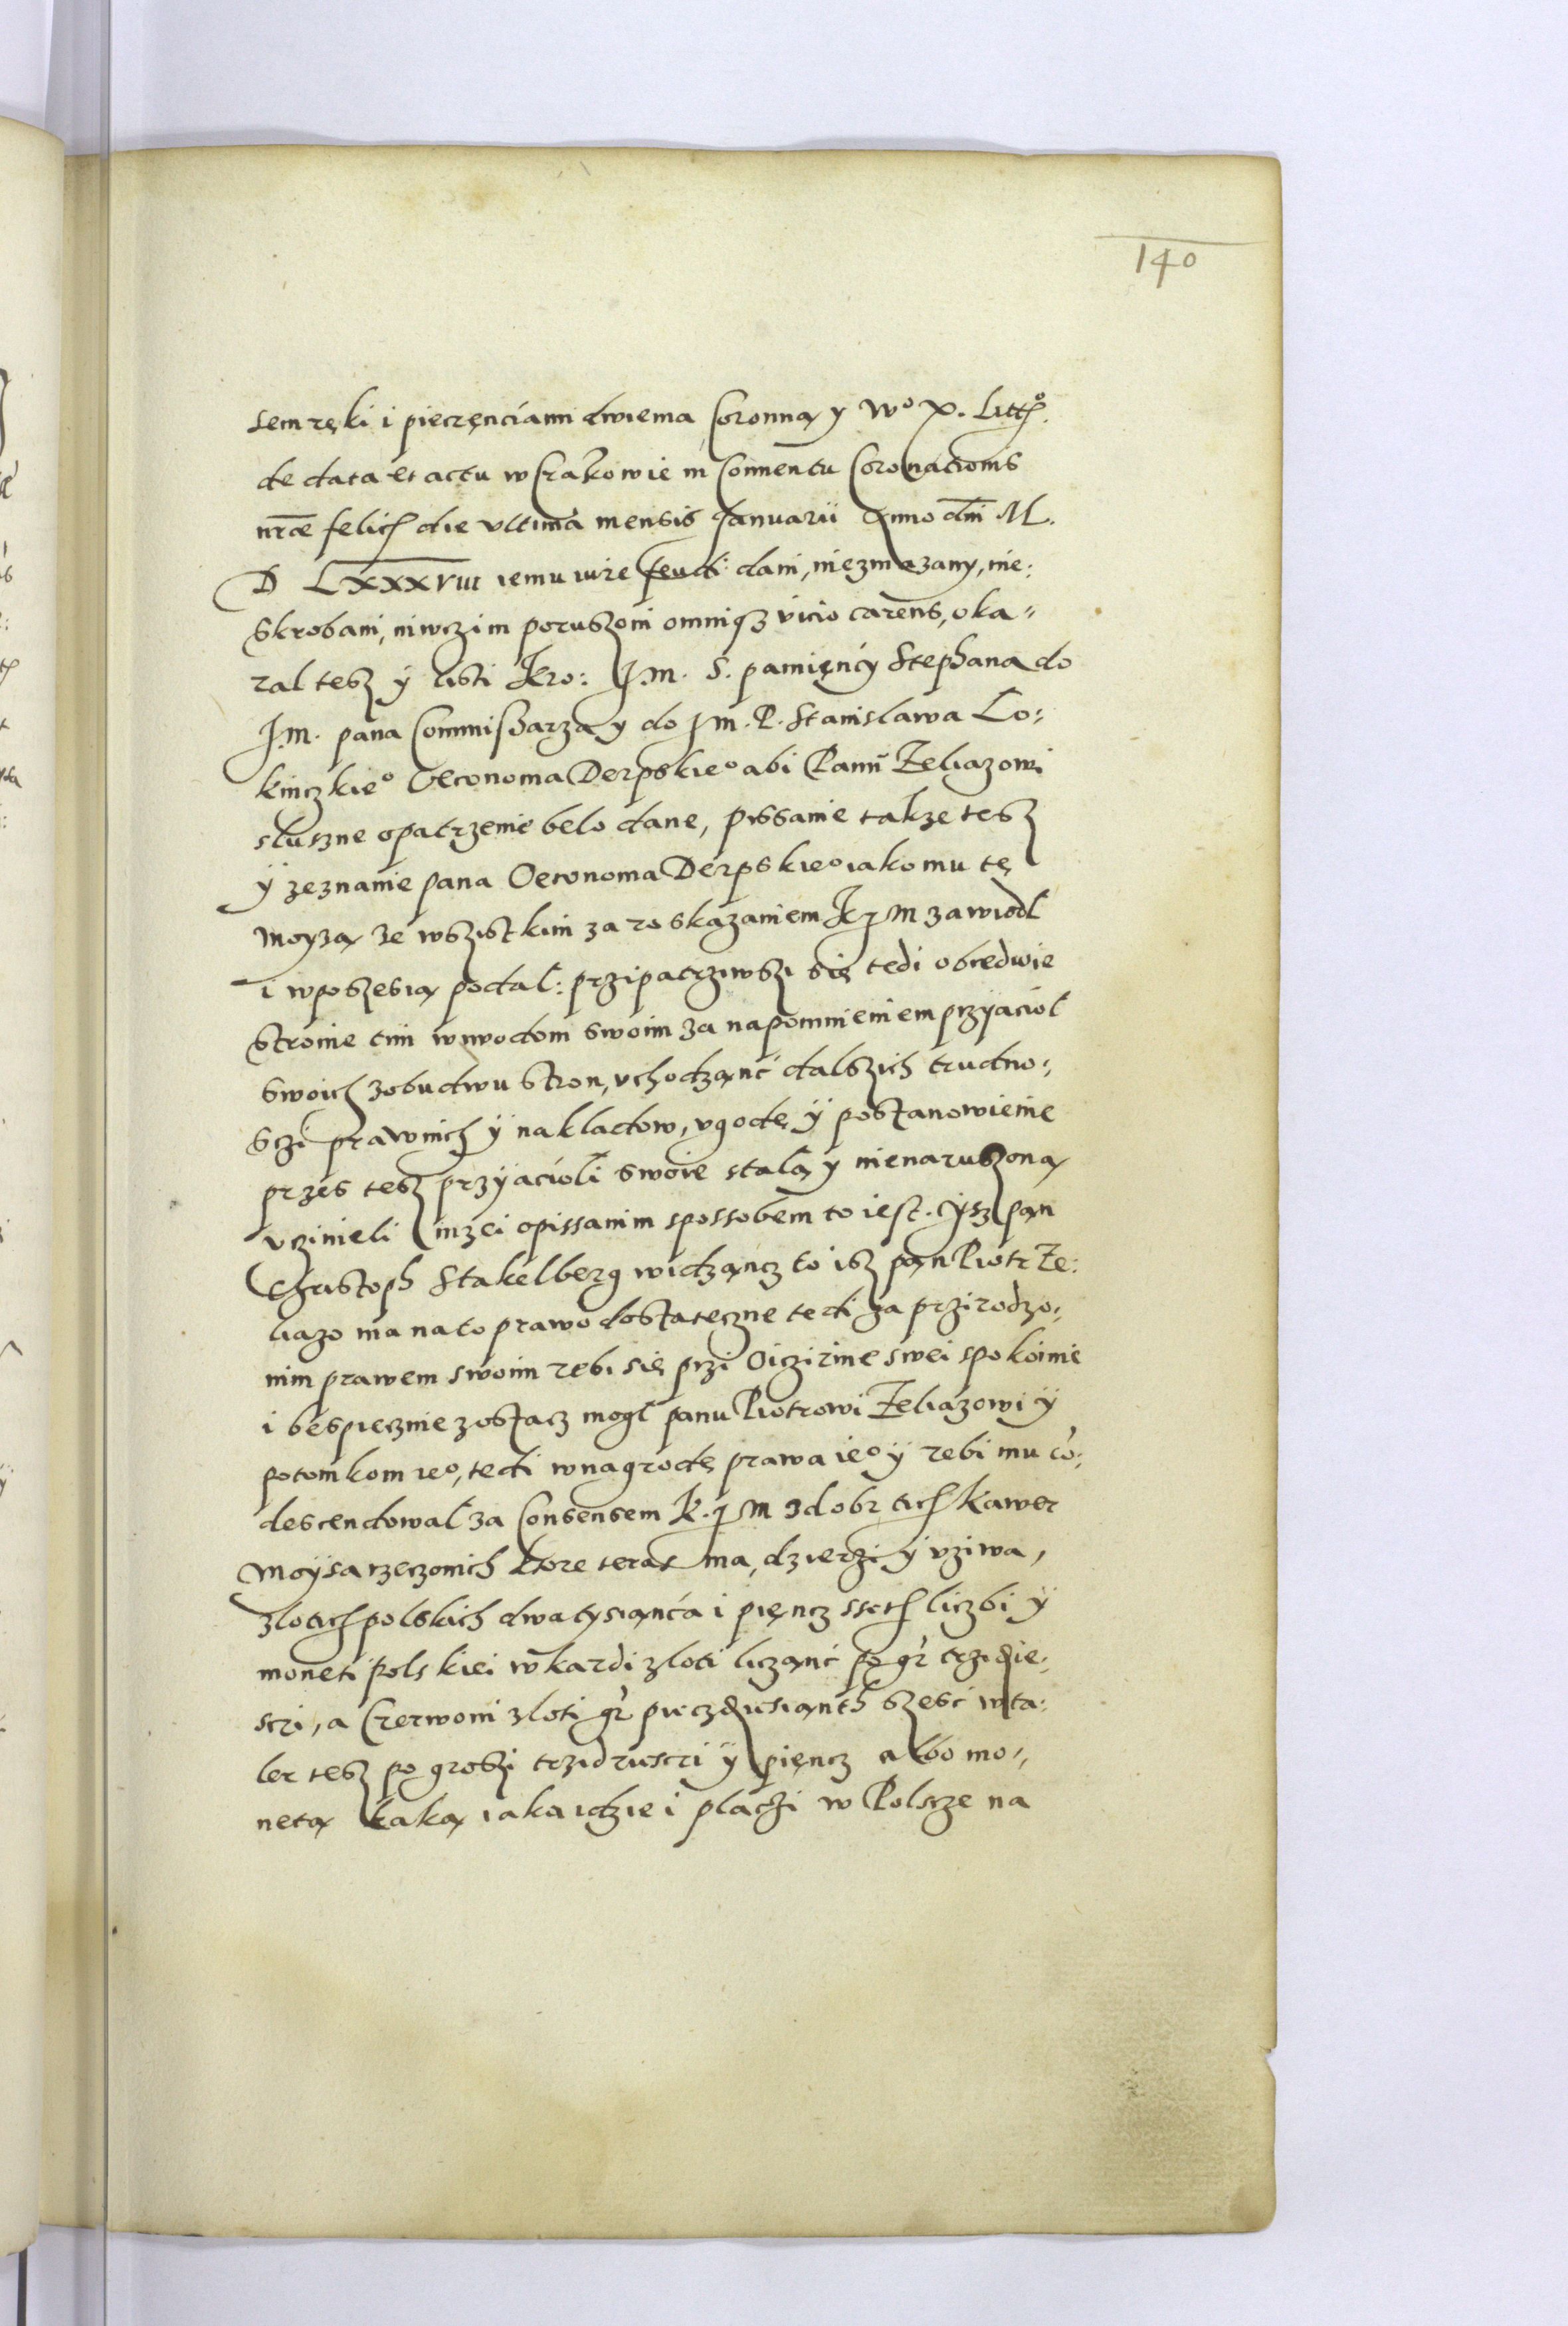 140
sem ręki i pieczęnciami dwiema Coronną y Wº X. Littº.
de data et actu w Crakowie in Conuentu Coronationis
nræ felicis die vltima mensis Januarii Anno dni M.
D LXXXVIII iemu iure feudi dani, niezmazany, nie:
skrobani, niwczim poruszoni omniqz vicio carens, oka=
zal tesz ÿ listi Kro: J.M. S. pamięnci Stephana do
J.M. pana Commissarza y do J M. P. Stanislawa Lo:
kniczkieº Oeconoma Derpskieº abi Panu Zeliazowi
sluszne opatrzenie belo dane, pissanie takze tesz
ÿ zeznanie pana Oeconoma Derpskieº iako mu tę
moyzą ze wszistkim za roskazaniem K J M zawiodl
i wposzesią podal: przipatrziwszi się tedi obiedwie
stronie tim wywodom swoim za napomnieniem przyaciol
swoich zobudwu stron, vchodząnc dalszich trudno:
sczi prawnich ÿ nakladow, vgodę ÿ postanowienie
przes tesz przyacioli swoie stalą y nienaruszoną
vczinieli inzei opissanim spossobem to iest. Jysz pan
Christoph Stakelberg widząncz to isz pan Piotr Ze:
liazo ma na to prawo dostateczne tedi za przirodzo:
nim prawem swoim zebi się przi Oiczizine swei spokoinie
i bespiecznie zostacz mogl panu Piotrowi Zeliazowi ÿ
potomkom ieº, tedi wnagrodę prawa ieº ÿ zebi mu co:
descendowal za Consensem K. J M z dobr tich Kawer
Moÿsa rzeczonich ktore teras ma, dzierzi ÿ vziwa,
zlotich polskich dwa tysiąnca i pięncz sset liczbi ÿ
moneti polskiei w kazdi zloti licząnc po gr trzidzie:
sci, a Czerwoni zloti gr pieczdziesiąnth szesc w ta:
ler tesz po groszi trzidziesci ÿ pięncz albo mo=
netą taką iaka idzie i placzi w Polscze na